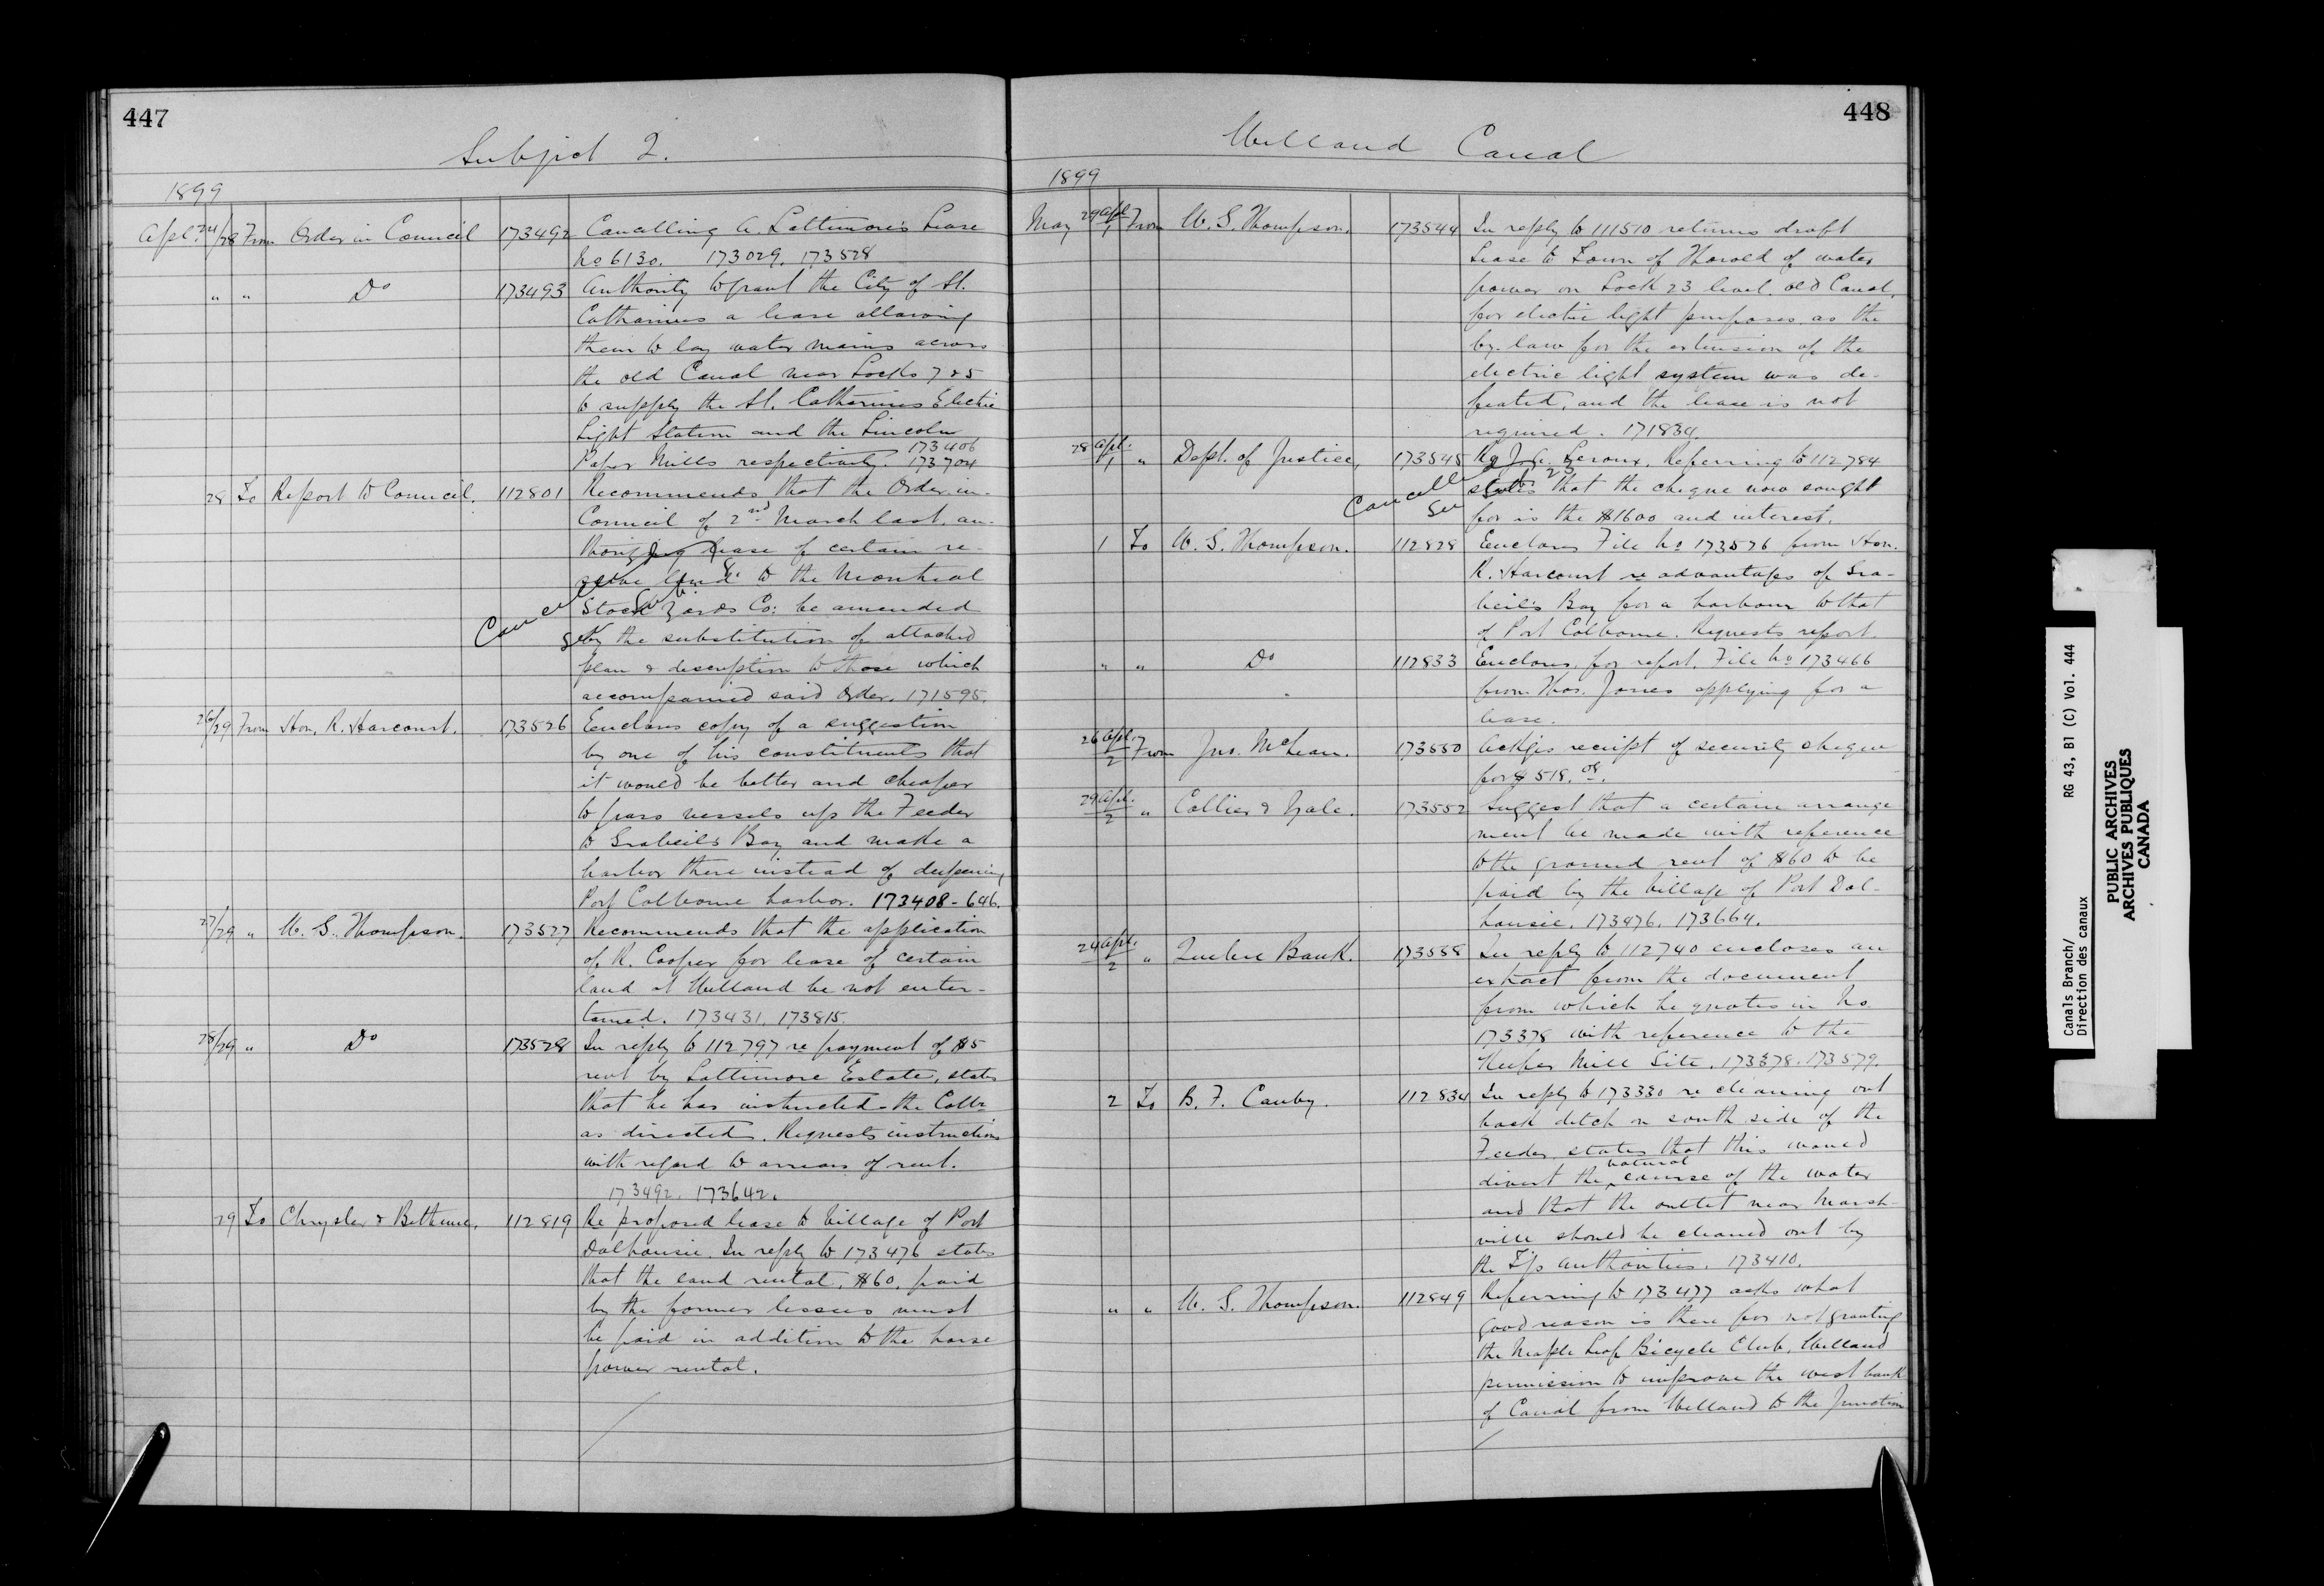 447
Subject 2.
1899
Apl. 24/28 From Order in Council 173492 Cancelling A. Lattimore's Lease
No 6130. 173029. 173528
" " Do 173493 Authority to grant the City of St.
Catharines a lease allowing
them to lay water mains across
the old Canal near Locks 7 & 5
to supply the St. Catharines Electric
Light Station and the Lincoln
173406
Paper Mills respectively. 173704
28 To Report to Council. 112801 Recommends that the Order-in-
Council of 2nd March last, au-
thorizing lease of certain re-
serve land to the Montreal
Stock Yards Co: be amended
by the substitution of attached
plan & description to those which
accompanied said Order. 171595.
Cancelled See Sub. 8.
26/29 From Hon. R. Harcourt. 173526 Encloses copy of a suggestion
by one of his constituents that
it would be better and cheaper
to pass vessels up the Feeder
to Grabeil's Bay and make a
harbor there instead of deepening
Port Colborne harbor. 173408-646.
27/29 " W. G. Thompson. 173527 Recommends that the application
of R. Cooper for lease of certain
land at Welland be not enter-
tained. 173431. 173815.
28/29 " Do 173528 In reply to 112797 re payment of $5
rent by Lattimore Estate, states
that he has instructed the Collr
as directed. Requests instructions
with regard to arrears of rent.
173492. 173642.
29 To Chrysler & Bethune. 112819 Re proposed lease to Village of Port
Dalhousie. In reply to 173476 states
that the land rental, $60. paid
by the former lessees must
be paid in addition to the horse
power rental.
448
Welland Canal
1899
May 29 Apl./1 From W. G. Thompson. 173544 In reply to 111510 returns draft
Lease to Town of Thorold of water
power on Lock 23 level. old Canal,
for electric light purposes as the
by-law for the extension of the
electric light system was de-
feated, and the lease is not
required. 171834.
28 Apl./1 " Dept. of Justice, 173545 Re J. C. Leroux. Referring to 112784
states that the cheque now sought
for is the $1600 and interest.
Cancelled See Sub. 23
1 To W. G. Thompson. 112828 Encloses File No 173526 from Hon.
R. Harcourt re advantages of Gra-
beil's Bay for a harbour to that
of Port Colborne. Requests report.
" " Do 112833 Encloses for report, File No 173466
from Thos. Jones applying for a
lease.
26 Apl./2 From Jno. McLean. 173550 Ackges receipt of security cheque
for $518.08.
29 Apl./2 " Collier & Yale. 173552 Suggest that a certain arrange
ment be made with reference
to the ground rent of $60 to be
paid by the Village of Port Dal-
housie. 173476. 173664.
24 Apl./2 " Quebec Bank. 173558 In reply to 112740 encloses an
extract from the document
from which he quotes in No.
173378 with reference to the
Keefer Mill Site. 173378. 173579.
2 To B. F. Canby. 112834 In reply to 173330 re cleaning out
back ditch on south side of the
Feeder, states that this would
divert the natural course of the water
and that the outlet near Marsh-
ville should be cleaned out by
the T'p authorities. 173410.
" " W. G. Thompson. 112849 Referring to 173477 asks what
good reason is there for not granting
the Maple Leaf Bicycle Club, Welland
permission to improve the west bank
of Canal from Welland to the Junction
Canals Branch/ RG 43, B1 (C) Vol. 444
Direction des canaux
PUBLIC ARCHIVES
ARCHIVES PUBLIQUES
CANADA